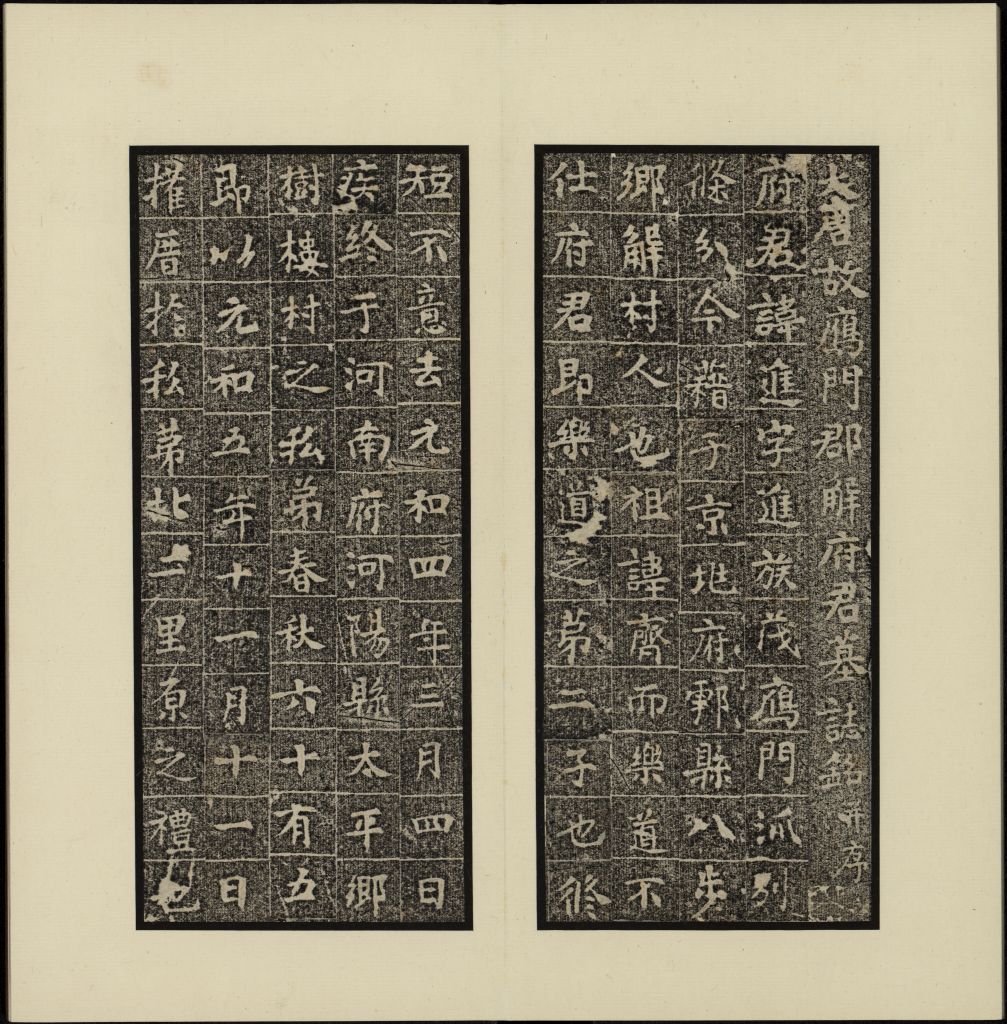 大唐故鴈門郡解府君墓誌銘并序
府君諱進字進族茂鴈門派別
條分今藉子京地府鄠縣八步
鄉解村人也祖諱齊而樂道不
仕府君即樂道之第二子也脩
短不意去元和四年三月四日
疾終于河南府河陽縣太平鄉
樹樓村之私第春秋六十有五
即以元和五年十一月十一日
擢厝於私第北二里原之禮也